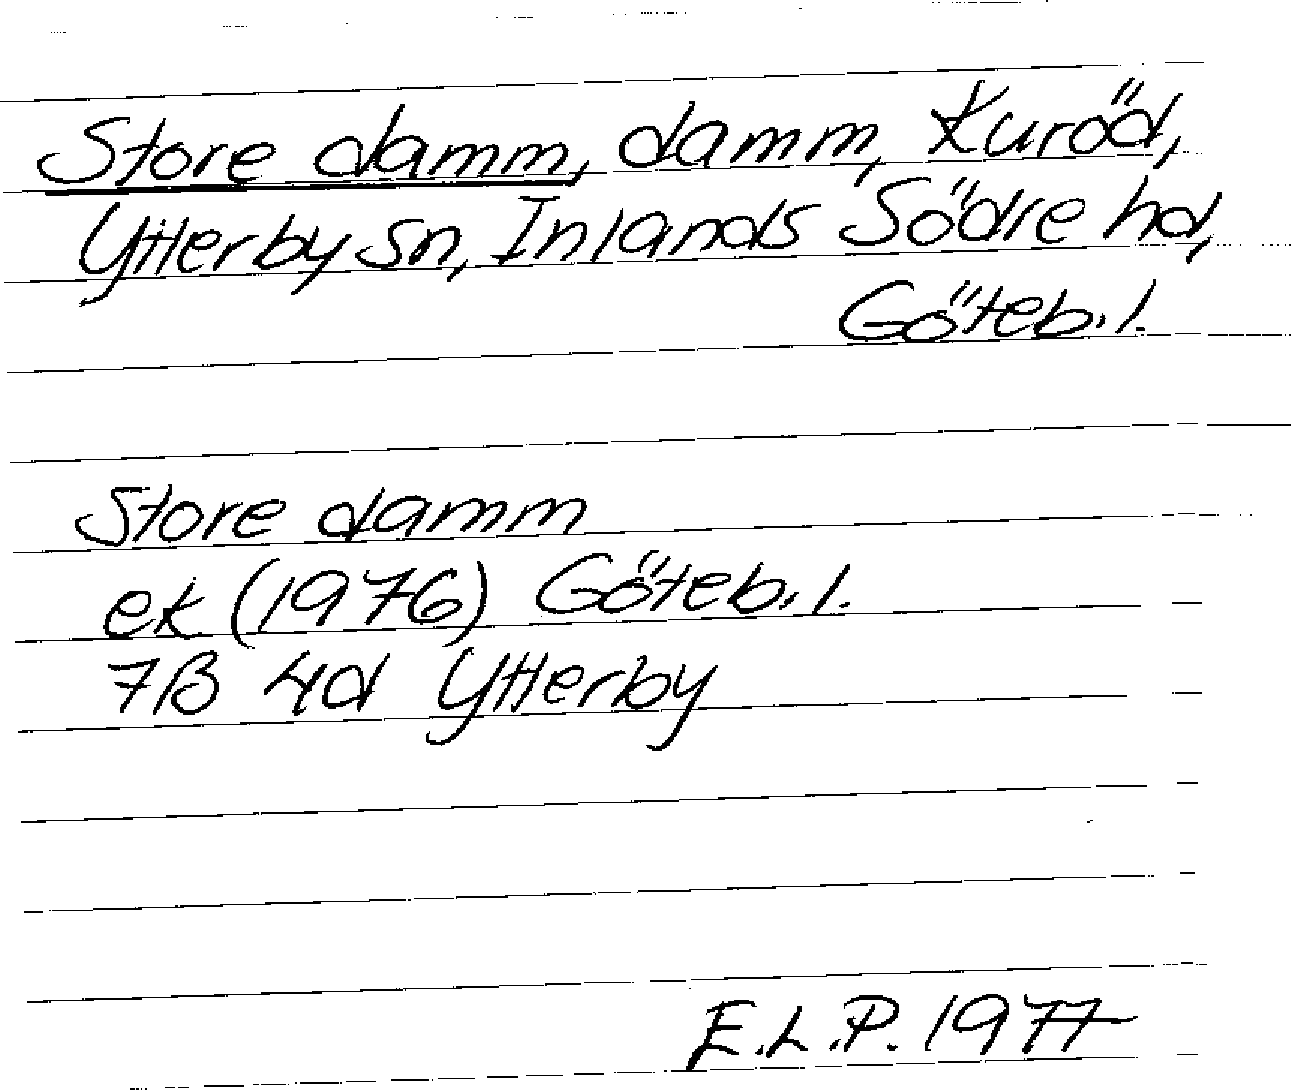 Store damm, damm, Kuröd,
Ytterby sn, Inlands Södre hd,
Göteb. l.
Store damm
ek (1976) Göteb. l.
7B 4d Ytterby
E.L.P. 1977